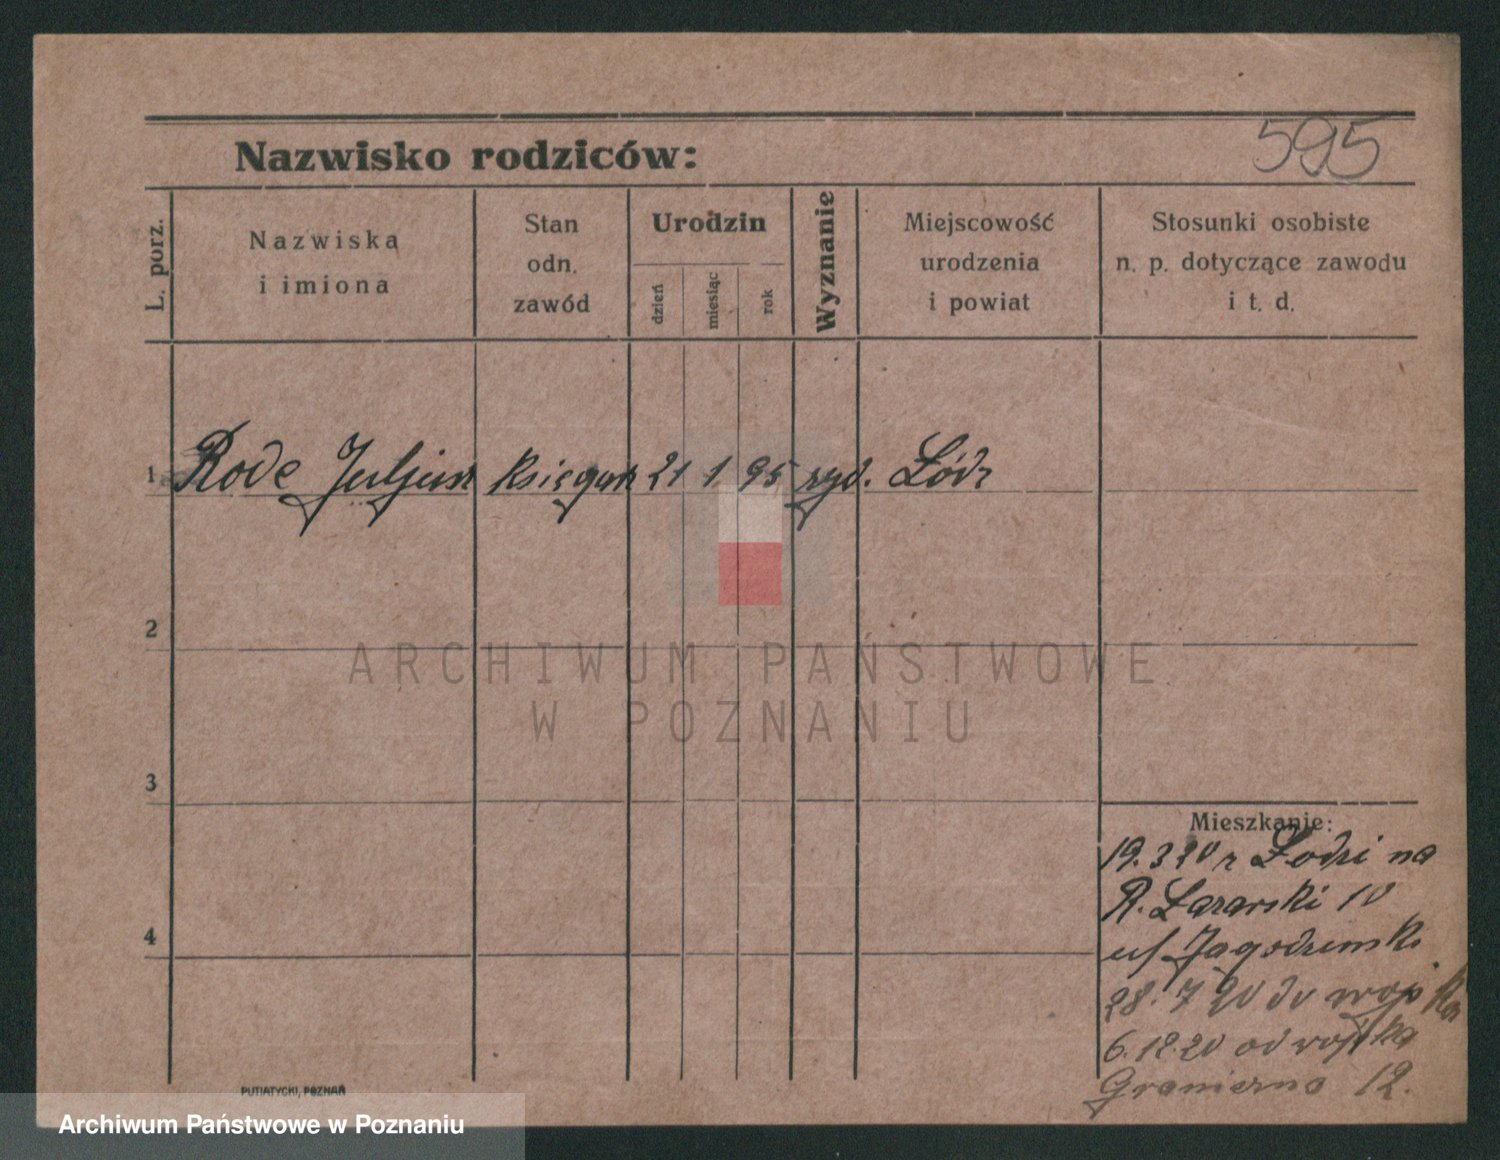 595
Nazwisko rodziców:
L. porz.
Nazwiska
i imiona
Stan
odn.
zawód
Urodzin
dzień
miesiąc
rok
Wyznanie
Miejscowość
urodzenia
i powiat
Stosunki osobiste
n. p. dotyczące zawodu
i t. d.
1 Rode Juljusz księgar 21 1 95 żyd. Łódź
2
ARCHIWUM PAŃSTWOWE
W POZNANIU
3
4
Mieszkanie:
19. 3 20 z Łodzi na
R. Łazarski 10
u/ Jagodzinsk.
28. 7 20 do wojska
6. 12. 20 od wojska
Graniczna 12.
PUTIATYCKI, POZNAŃ
Archiwum Państwowe w Poznaniu